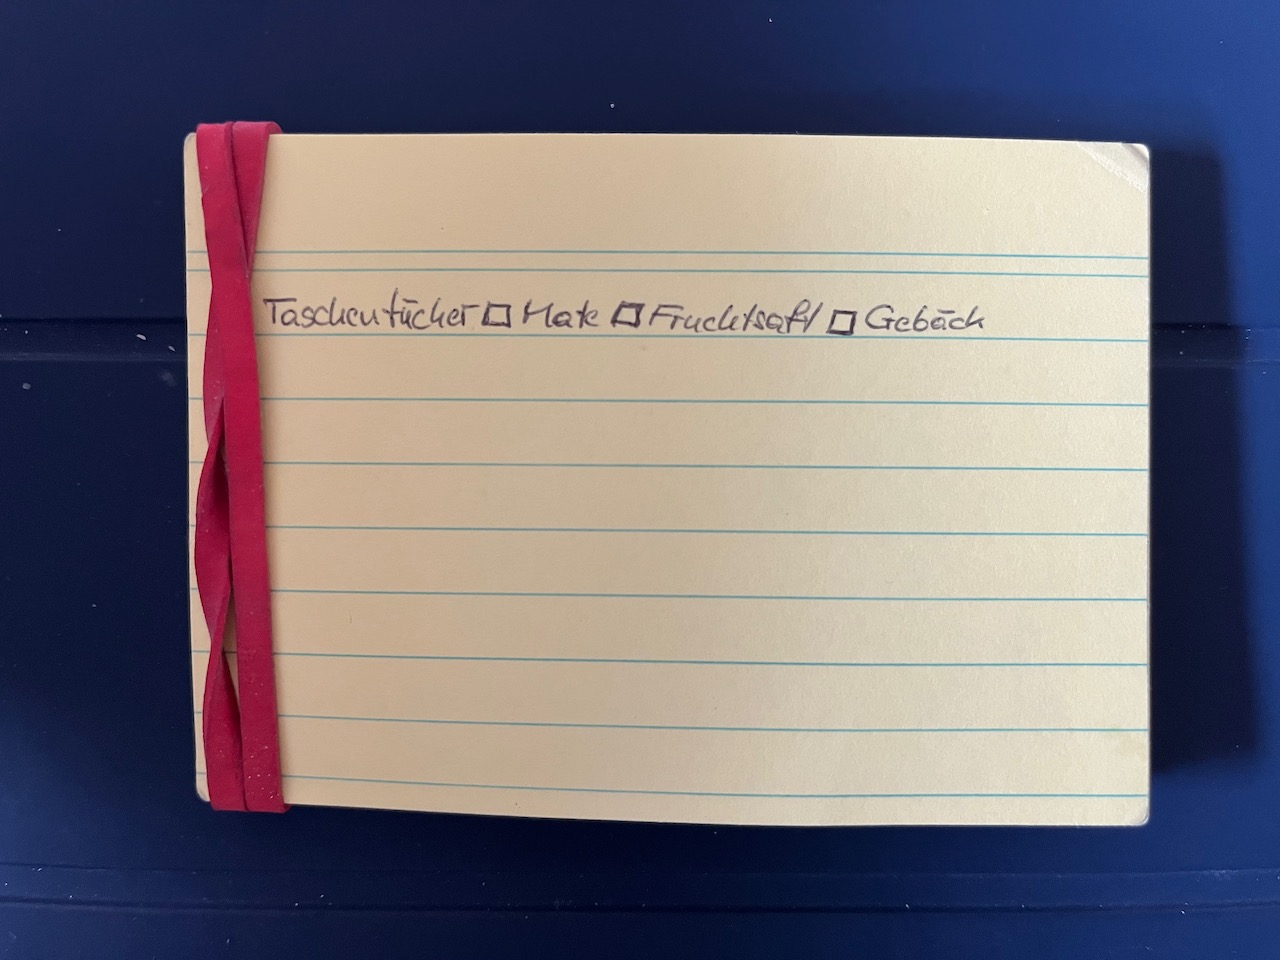 Taschentücher ☐ Mate ☐ Fruchtsaft ☐ Gebäck